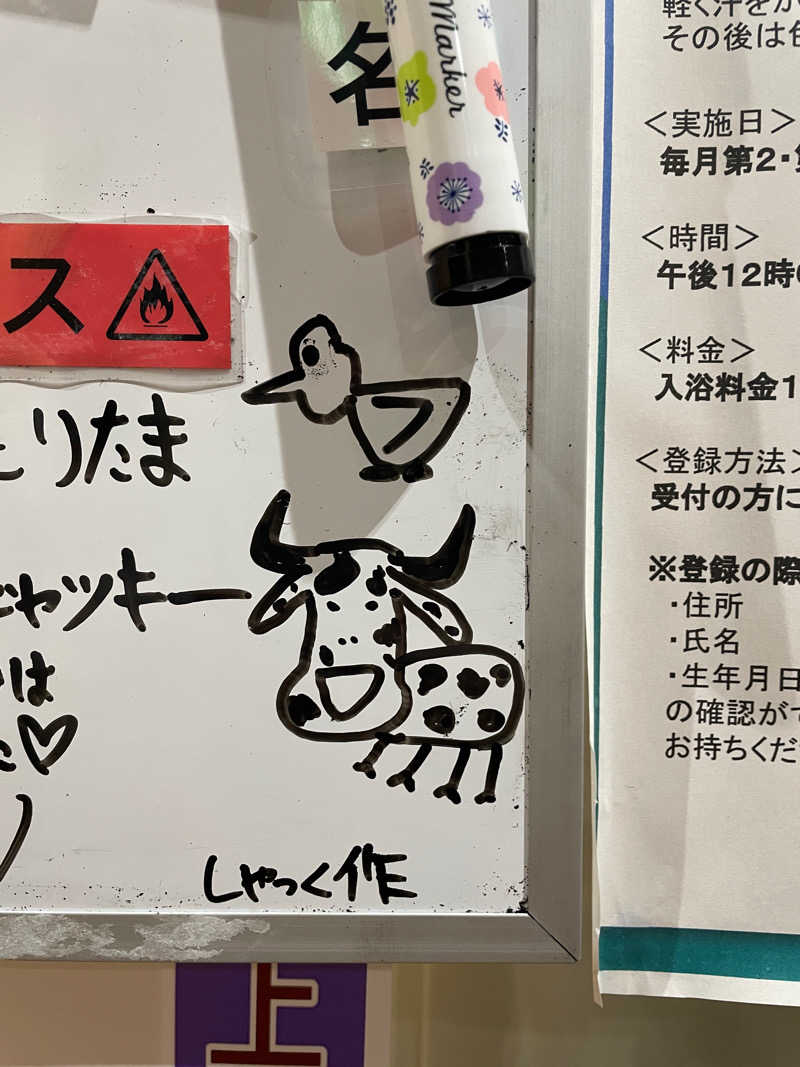 名
Marker
ス
とりたま
ジャッキー
は
た♡
しゃっく作
上
軽く汗をか
その後は
<実施日>
毎月第2・第
<時間>
午後12時
<料金>
入浴料金1
<登録方法>
受付の方に
※登録の際
・住所
・氏名
・生年月日
の確認がで
お持ちくだ